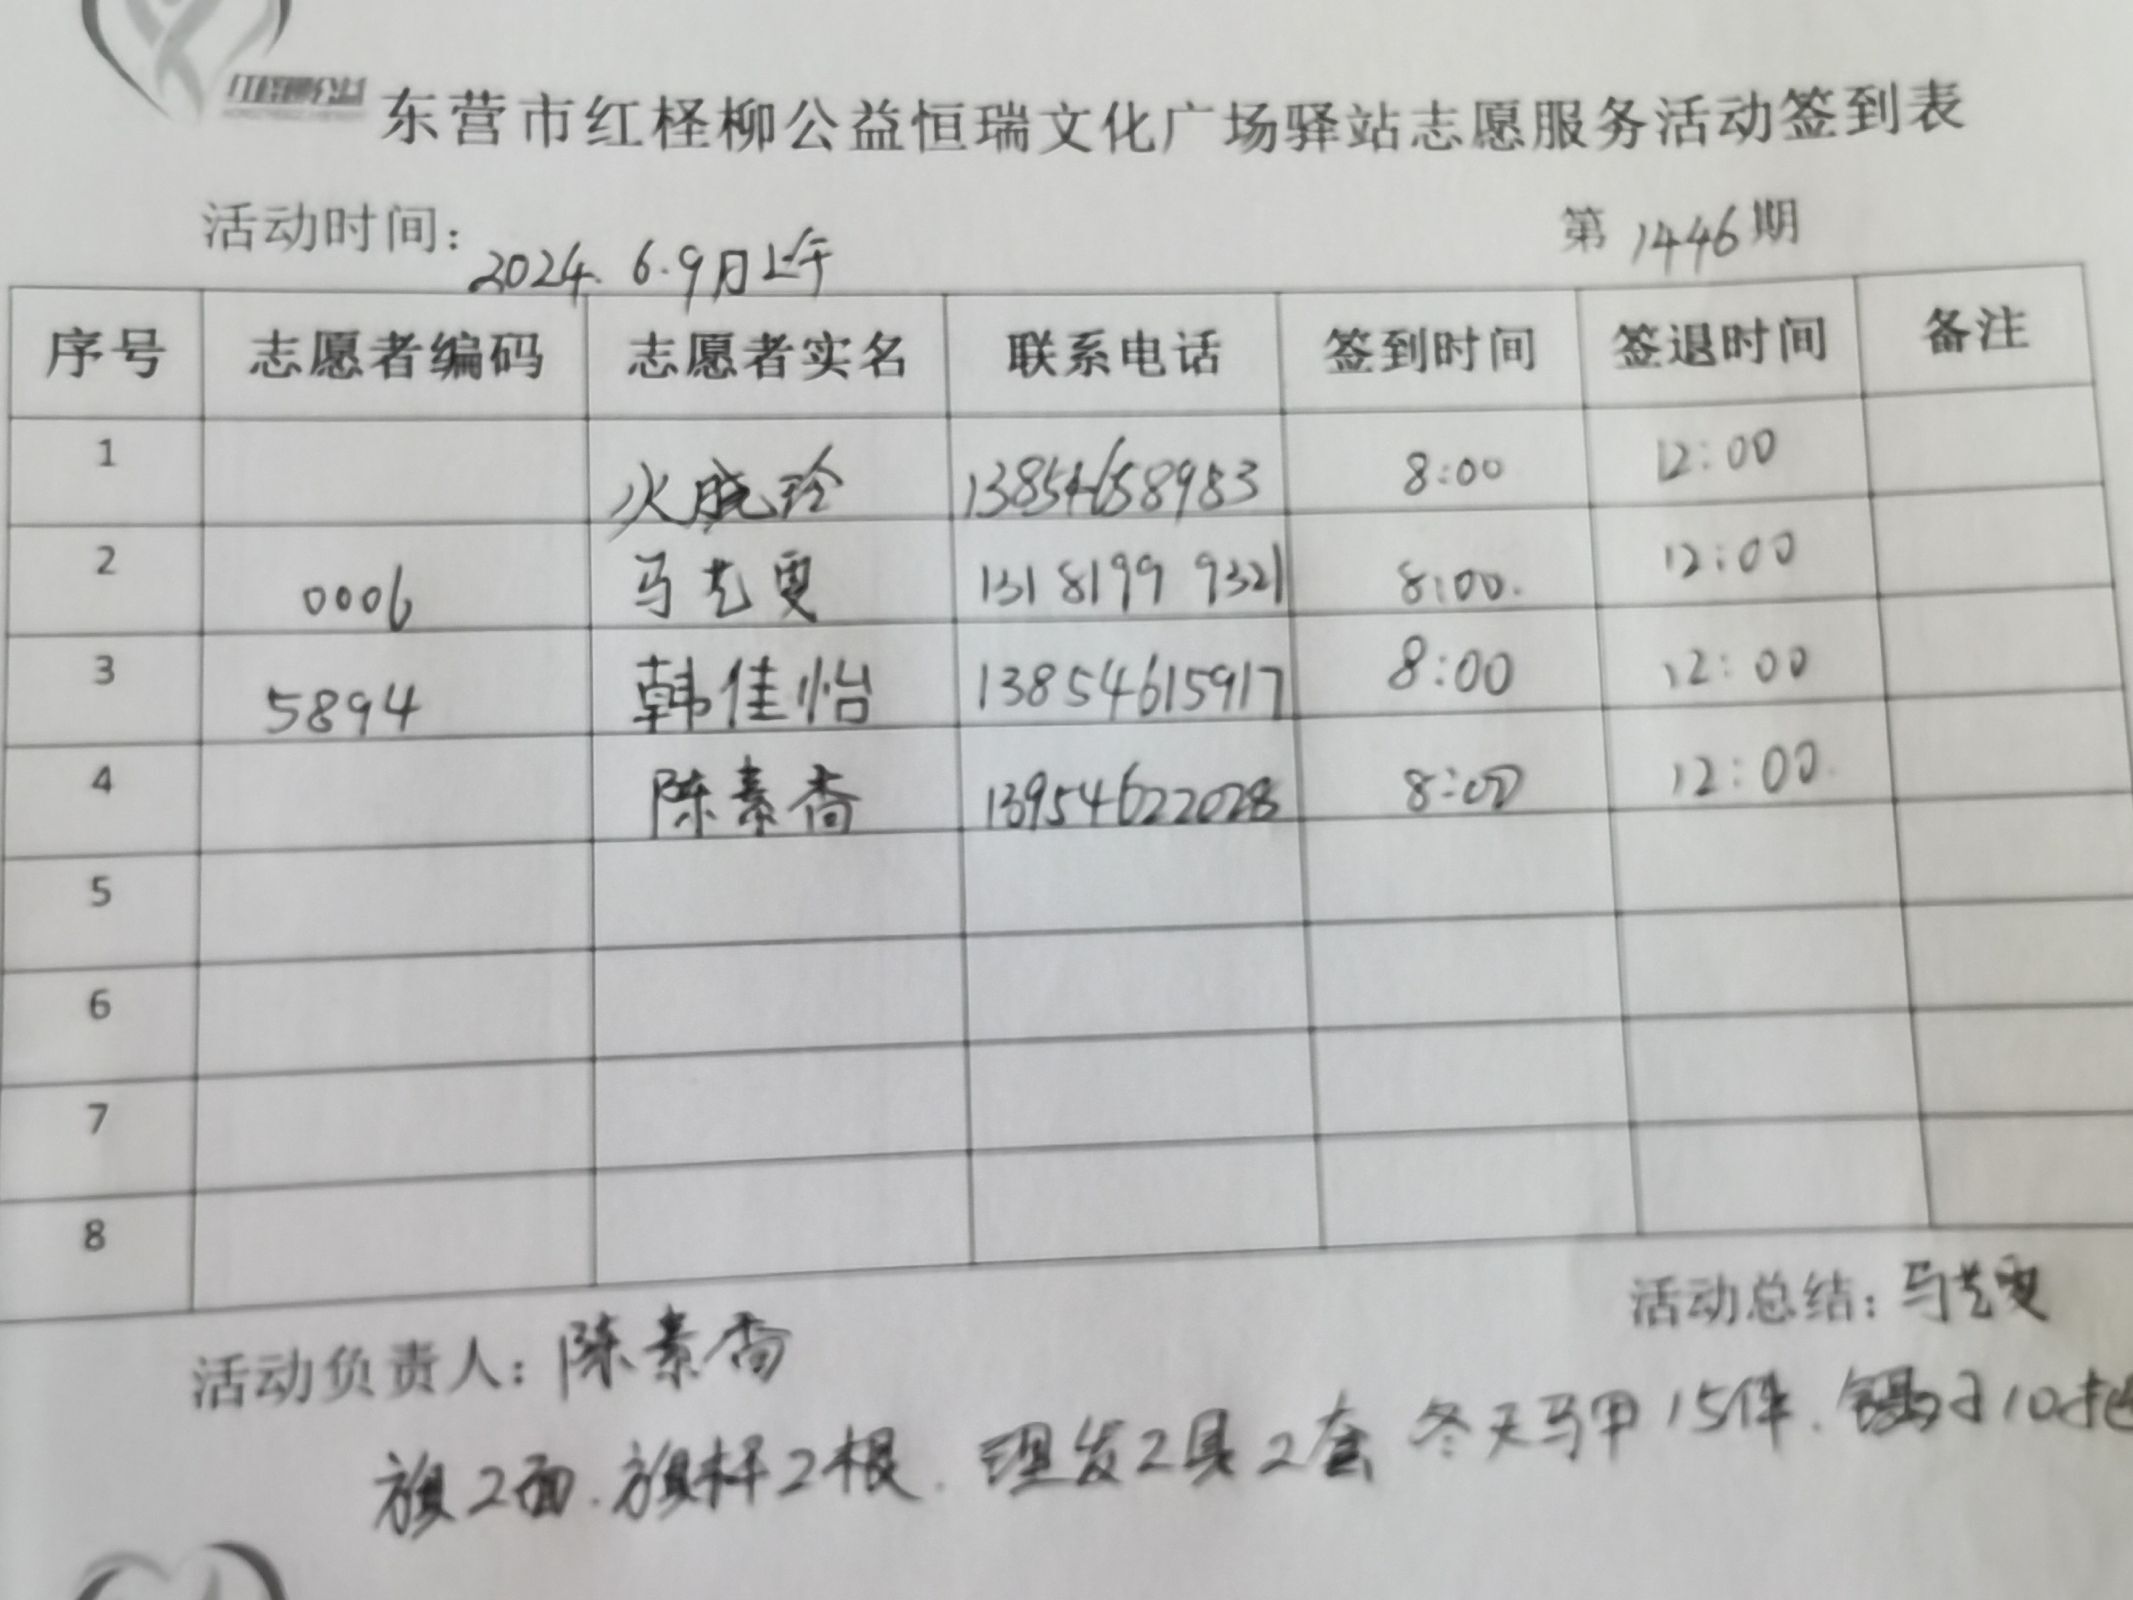 红柽柳公益
东营市红柽柳公益恒瑞文化广场驿站志愿服务活动签到表
活动时间: 2024. 6.9月上午 第1446期
序号 志愿者编码 志愿者实名 联系电话 签到时间 签退时间 备注
1 火晓玲 13854658983 8:00 12:00
2 0006 马艺雯 13181999321 8:00. 12:00
3 5894 韩佳怡 13854615917 8:00 12:00
4 陈素香 13954622028 8:00 12:00.
5
6
7
8
活动负责人: 陈素香 活动总结: 马艺雯
旗2面. 旗杆2根. 理发2具2套 冬天马甲15件. 10把